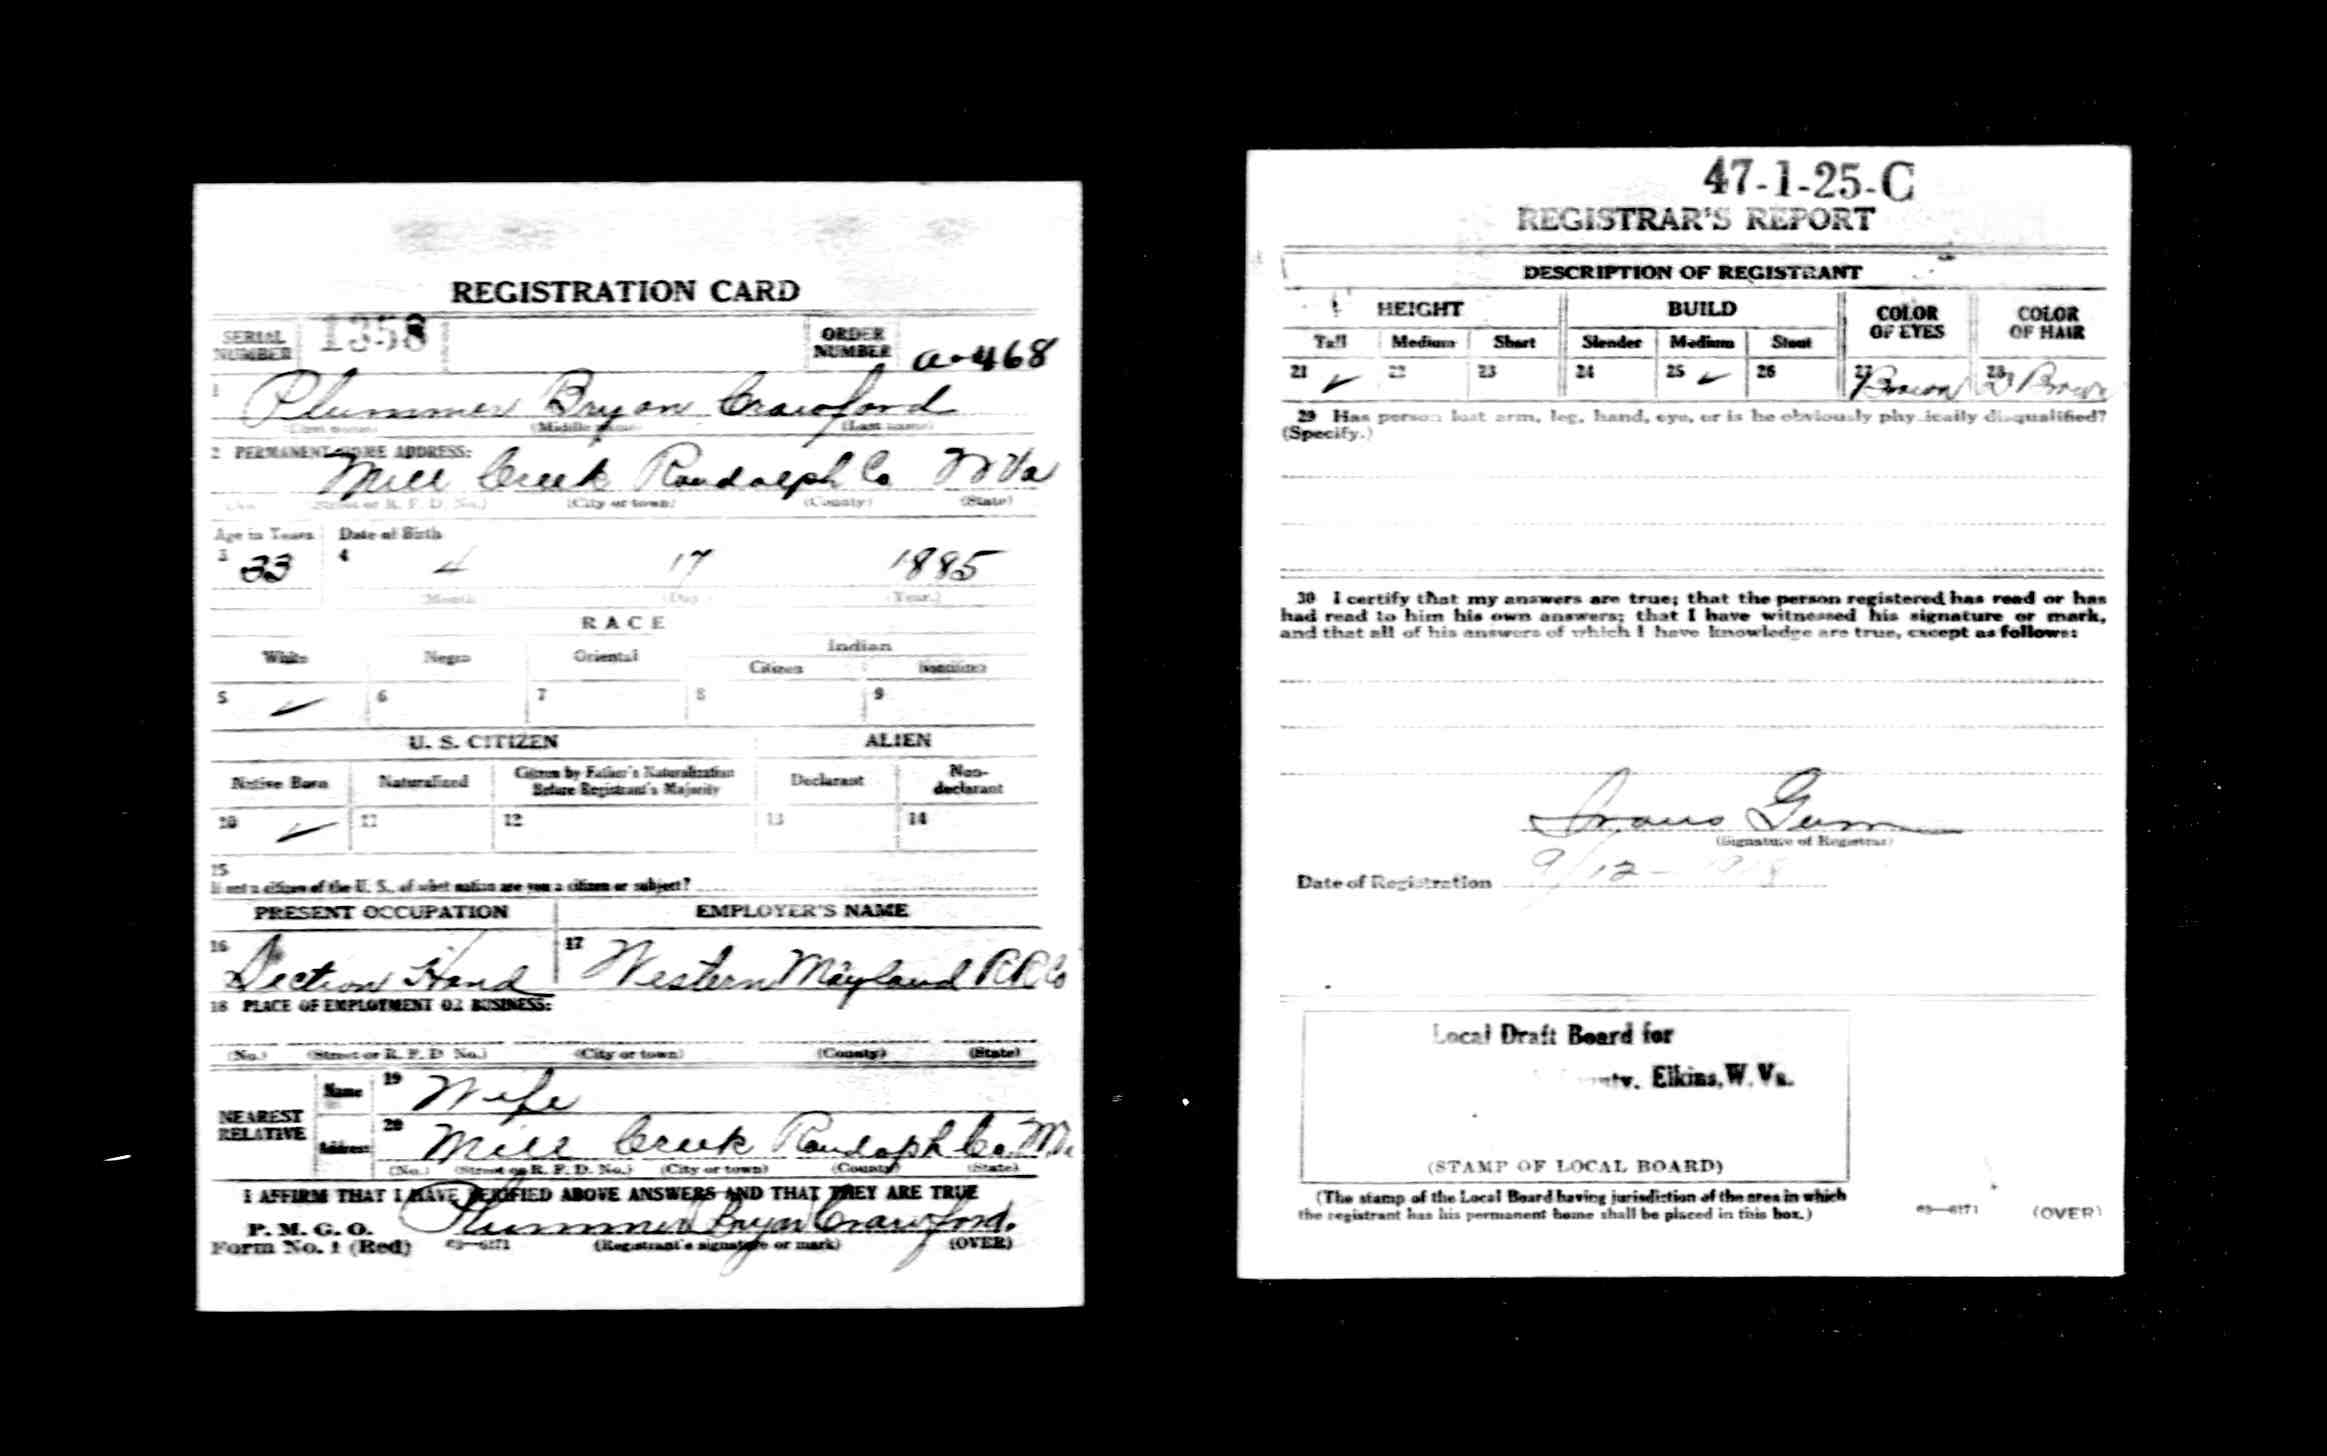 REGISTRATION CARD
SERIAL NUMBER 1358 ORDER NUMBER a-468
1 Plummer Bryan Crawford
(First name) (Middle name) (Last name)
2 PERMANENT HOME ADDRESS:
Mill Creek Randolph Co W Va
(No.) (Street or R. F. D. No.) (City or town) (County) (State)
Age in Years Date of Birth
3 33 4 4 17 1885
(Month) (Day) (Year.)
RACE
White Negro Oriental Indian
Citizen Noncitizen
5 ✓ 6 7 8 9
U. S. CITIZEN ALIEN
Native Born Naturalized Citizen by Father's Naturalization Before Registrant's Majority Declarant Non-declarant
10 ✓ 11 12 13 14
15
If not a citizen of the U. S., of what nation are you a citizen or subject?
PRESENT OCCUPATION EMPLOYER'S NAME
16 Section Hand 17 Western Mayland R R Co
18 PLACE OF EMPLOYMENT OR BUSINESS:
(No.) (Street or R. F. D. No.) (City or town) (County) (State)
NEAREST RELATIVE Name 19 Wife
Address 20 Mill Creek Randolph Co.
(No.) (Street or R. F. D. No.) (City or town) (County) (State)
I AFFIRM THAT I HAVE VERIFIED ABOVE ANSWERS AND THAT THEY ARE TRUE
P. M. G. O.
Form No. 1 (Red) 03—6171 Plummer Bryan Crawford.
(Registrant's signature or mark) (OVER)
47-1-25-C
REGISTRAR'S REPORT
DESCRIPTION OF REGISTRANT
HEIGHT BUILD COLOR OF EYES COLOR OF HAIR
Tall Medium Short Slender Medium Stout
21 ✓ 22 23 24 25 ✓ 26 27 Brown 28 D Brown
29 Has person lost arm, leg, hand, eye, or is he obviously physically disqualified?
(Specify.)
30 I certify that my answers are true; that the person registered has read or has
had read to him his own answers; that I have witnessed his signature or mark,
and that all of his answers of which I have knowledge are true, except as follows:
Gum
(Signature of Registrar)
Date of Registration 9/12-1918
Local Draft Board for
Elkins, W. Va.
(STAMP OF LOCAL BOARD)
(The stamp of the Local Board having jurisdiction of the area in which
the registrant has his permanent home shall be placed in this box.)
03—6171 (OVER)